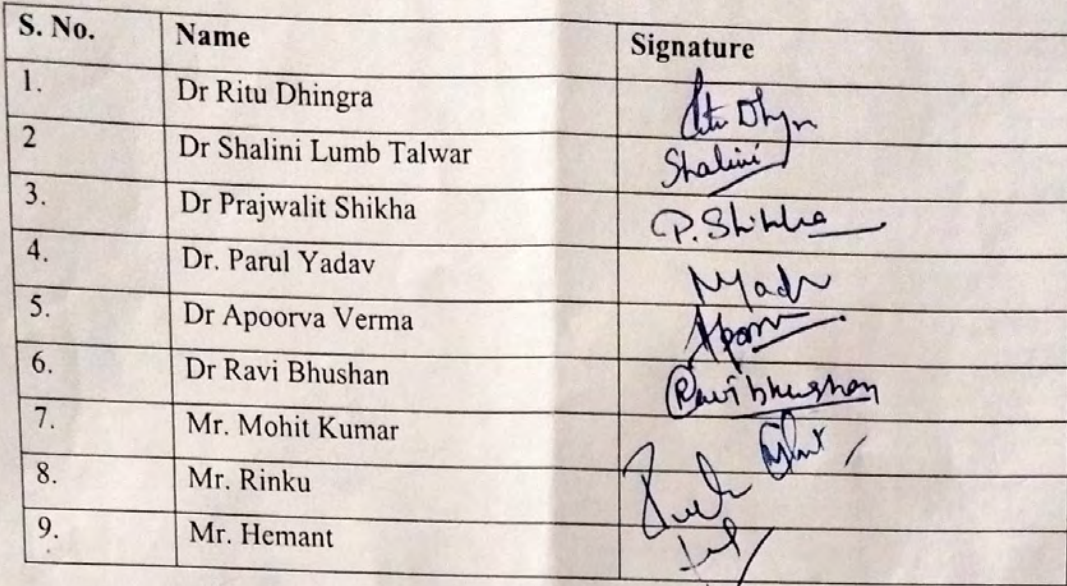 S. No. Name Signature
1. Dr Ritu Dhingra
2 Dr Shalini Lumb Talwar Shalini
3. Dr Prajwalit Shikha P. Shikha
4. Dr. Parul Yadav
5. Dr Apoorva Verma
6. Dr Ravi Bhushan Ravi bhushan
7. Mr. Mohit Kumar
8. Mr. Rinku
9. Mr. Hemant